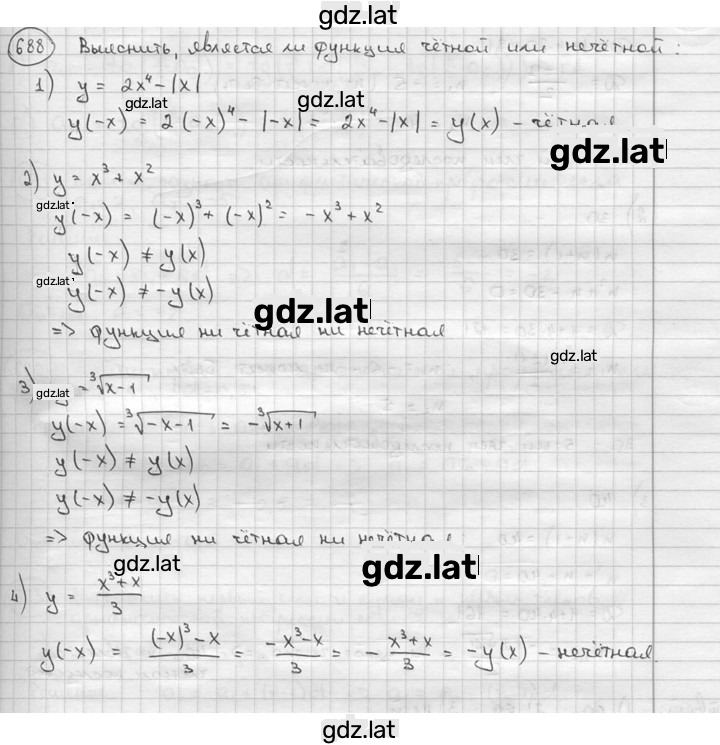 gdz.lat
688 Выяснить, является ли функция чётной или нечётной:
1) y = 2x⁴ - |x|
gdz.lat
gdz.lat
y(-x) = 2(-x)⁴ - |-x| = 2x⁴ - |x| = y(x) - чётная
gdz.lat
2) y = x³ + x²
gdz.lat
y(-x) = (-x)³ + (-x)² = -x³ + x²
y(-x) ≠ y(x)
gdz.lat
y(-x) ≠ -y(x)
gdz.lat
=> функция ни чётная ни нечётная
gdz.lat
3) y = ∛(x-1)
gdz.lat
y(-x) = ∛(-x-1) = -∛(x+1)
y(-x) ≠ y(x)
y(-x) ≠ -y(x)
=> функция ни чётная ни нечётная
gdz.lat
gdz.lat
4) y = (x³+x)/3
y(-x) = ((-x)³-x)/3 = (-x³-x)/3 = -(x³+x)/3 = -y(x) - нечётная.
gdz.lat